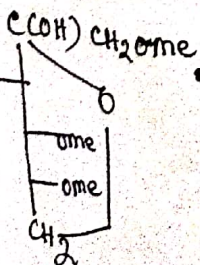 C(OH) CH2ome
O
ome
ome
CH2